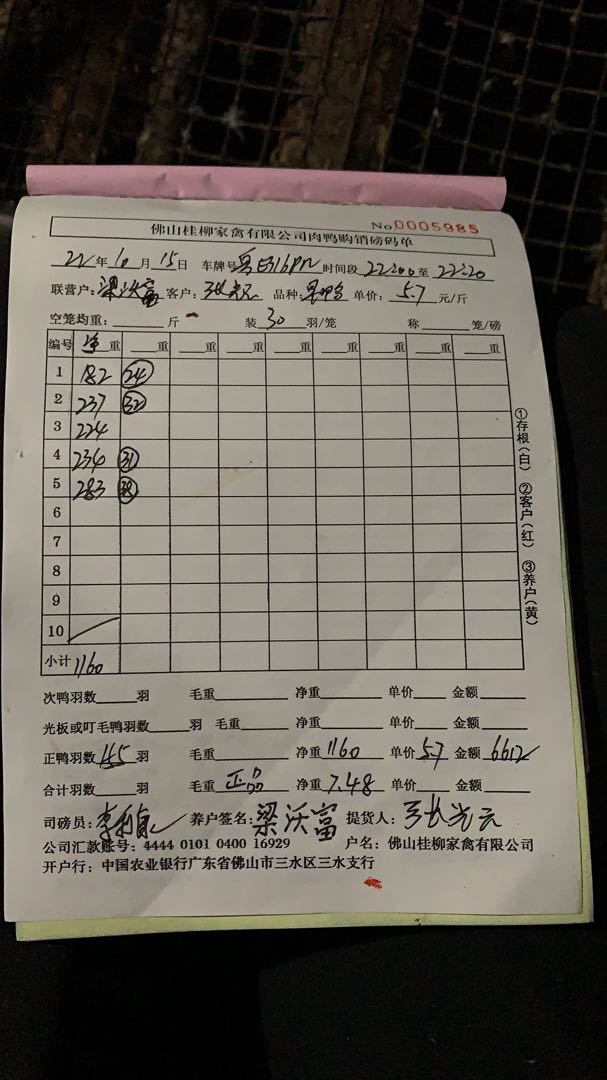 佛山桂柳家禽有限公司肉鸭购销磅码单 No 0005985
22年10月15日 车牌号 时间段 22:00至22:20
联营户：梁沃富 客户： 品种： 单价：5.7元/斤
空笼均重：斤 装30羽/笼 称 笼/磅
编号 净重 重 重 重 重 重 重 重 重
1 182 24
2 237 32
3 224
4 234 31
5 283 38
6
7
8
9
10
小计 1160
①存根（白） ②客户（红） ③养户（黄）
次鸭羽数 羽 毛重 净重 单价 金额
光板或叮毛鸭羽数 羽 毛重 净重 单价 金额
正鸭羽数155羽 毛重 净重1160 单价5.7 金额6612
合计羽数 羽 毛重 正品 净重7.48 单价 金额
司磅员： 养户签名：梁沃富 提货人：张光云
公司汇款账号：4444 0101 0400 16929 户名：佛山桂柳家禽有限公司
开户行：中国农业银行广东省佛山市三水区三水支行